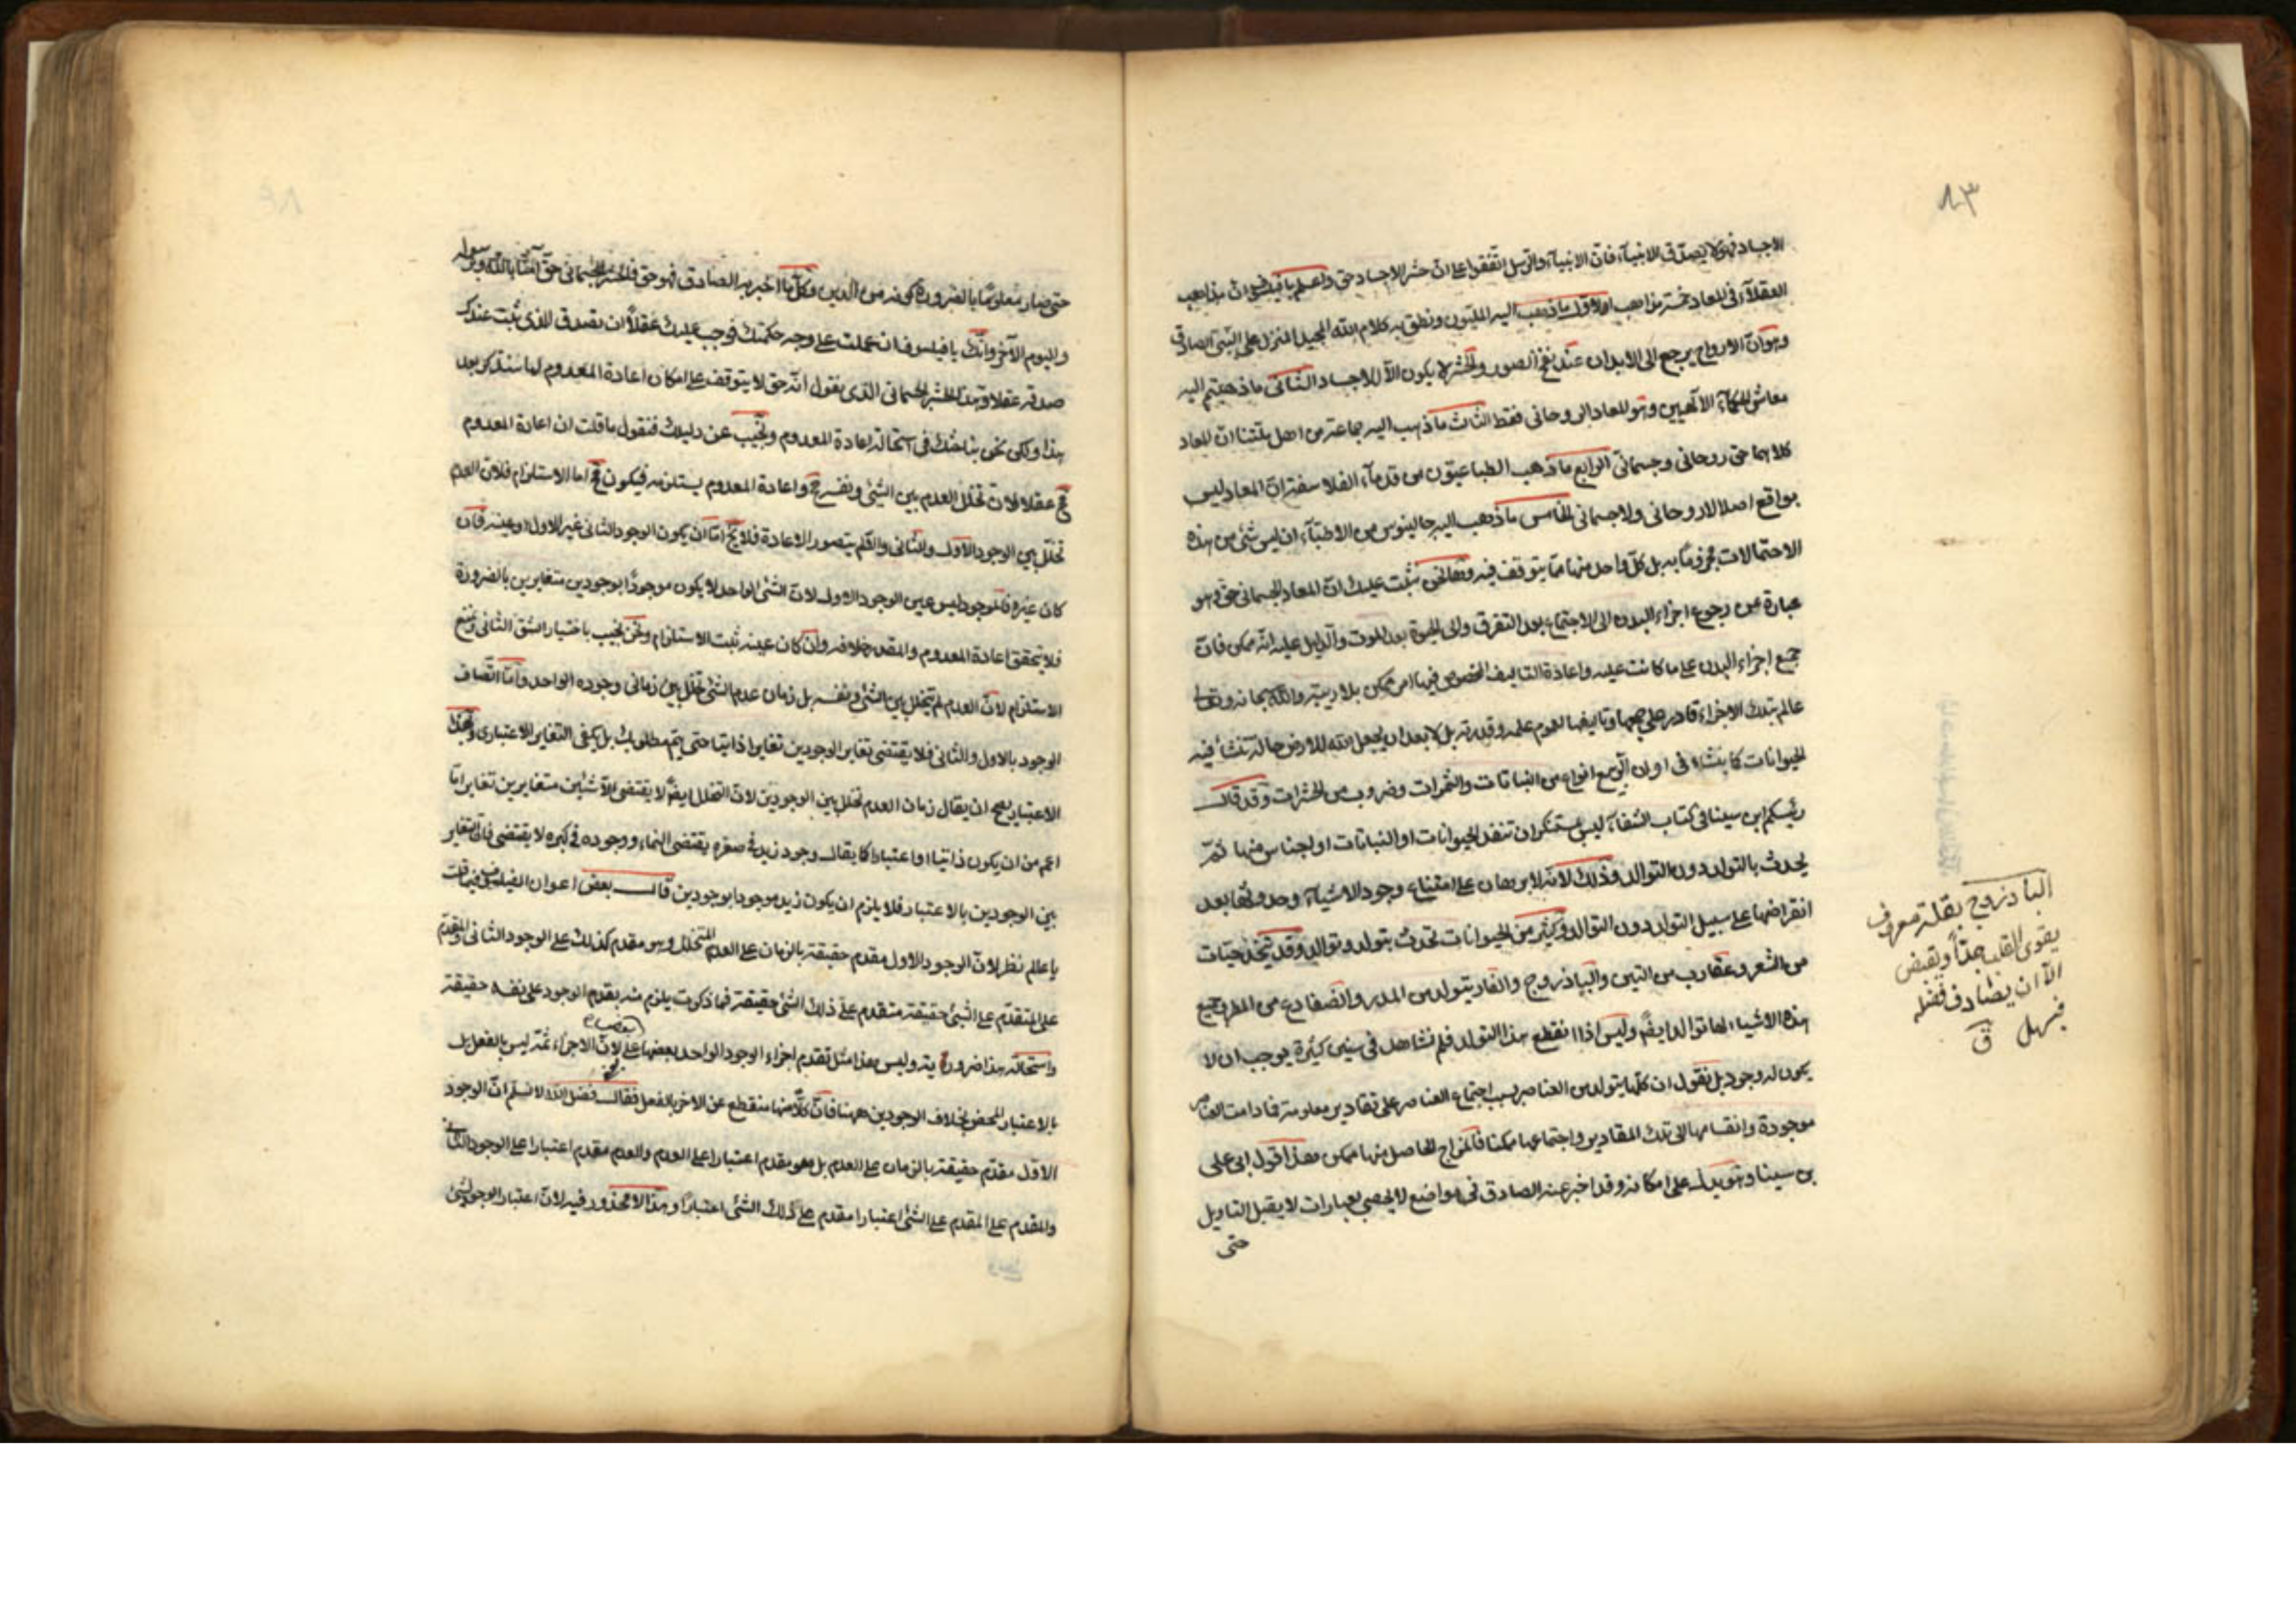 ٨٣
الاجساد فهو لا يصدق الانبيآء فان الانبيآء والرسل اتفقوا على ان حشر الاجساد حق واعلم يا فيلسوف ان مذاهب
العقلآء فى المعاد خمسة مذاهب الاول ما ذهب اليه المليون ونطق به كلام الله المجيد المنزل على النبى الصادق
وهو ان الارواح يرجع الى الابدان عند نفخ الصور والحشر لا يكون الا للاجساد الثانى ما ذهبتم اليه
معاشر الحكمآء الآلهيين وهو المعاد الروحانى فقط الثالث ما ذهب اليه جماعة من اهل ملتنا ان المعاد
كلاهما حق روحانى وجسمانى الرابع ما ذهب الطباعيون من قدمآء الفلاسفة ان المعاد ليس
بواقع اصلا لا روحانى ولا جسمانى الخامس ما ذهب اليه جالينوس من الاطبآء ان ليس شئ من هذه
الاحتمالات مجزوما به بل كل واحد منها مما يتوقف فيه وها نحن نثبت عليك ان المعاد الجسمانى حق وهو
عبارة عن رجوع اجزاء البدن الى الاجتماع بعد التفرق والى الحيوة بعد الموت والدليل عليه انه ممكن فان
جميع اجزاء البدن على ما كانت عليه واعادة التاليف المخصوص فيها امر ممكن بلا ريبة والله سبحانه وتعالى
عالم بتلك الاجزاء قادر على جمعها وتاليفها لعموم علمه وقدرته بل لا بعد ان يجعل الله للارض حالة تنشأ فيه
الحيوانات كما ينشاء فى اوان الربيع انواع من النباتات والثمرات وضروب من الحشرات وقد قال
رئيسكم ابن سينا فى كتاب الشفاء ليس بمستنكر ان تنفد الحيوانات او النباتات او اجناس منها ثم
يحدث بالتولد دون التوالد وذلك لانه لا برهان على امتناع وجود الاشيآء وحدوثها بعد
انقراضها على سبيل التولد دون التوالد وكثير من الحيوانات تحدث بتولد وتوالد وقد تتخذ حيّات
من الشعر وعقارب من التين والباذروج والفار يتولد من المدر والضفادع من المطر وجميع
هذه الاشياء لها توالد ايضً وليس اذا انقطع هذا التولد فلم نشاهد فى سنين كثيرة يوجب ان لا
يكون له وجود بل نقول ان كلما يتولد من العناصر بسبب اجتماع العناصر على مقادير معلومة فما دامت العناصر
موجودة وانقسامها الى تلك المقادير واجتماعها ممكنا فالمزاج الحاصل منها ممكن هذا قول ابى على
بن سينا وهو يدل على امكانه وقد اخبر عنه الصادق فى مواضع لا يحصى بعبارات لا يقبل التاويل
حتى
الباذروج بقلة معروف
يقوى القلب جدا ويقبض
الا ان يصادف فضلة
فيسهل ق
حتى صار معلوما بالضرورة كونه من الدين وكل ما اخبر به الصادق فهو حق فالحشر الجسمانى حق آمنا بالله ورسوله
واليوم الآخر وانك يا فيلسوف ان عملت على وجه حكمتك فوجب عليك عقلا ان تصدق للذى ثبت عندك
صدقه عقلا وهذا الحشر الجسمانى الذى نقول انه حق لا يتوقف على امكان اعادة المعدوم لما سنذكر بعد
هذا ولكن نحن بناحثك فى استحالة اعادة المعدوم ونجيب عن دليلك فنقول ما قلت ان اعادة المعدوم
مح عقلا لان تخلل العدم بين الشئ ونفسه مح واعادة المعدوم يستلزمه فيكون مح اما الاستلزام فلان العدم
تخلل بين الوجود الاول والثانى والا لم يتصور الاعادة فلا يخ اما ان يكون الوجود الثانى غير الاول او عينه فان
كان غيره فالموجود ليس عين الوجود الاول لان الشئ الواحد لا يكون موجودا بوجودين متغايرين بالضرورة
فلا يتحقق اعادة المعدوم والمقدر خلافه وان كان عينه ثبت الاستلزام ونحن نجيب باختيار الشق الثانى ونمنع
الاستلزام لان العدم لم يتخلل بين الشئ ونفسه بل زمان عدم الشئ تخلل بين زمانى وجوده الواحد واما اتصاف
الوجود بالاول والثانى فلا يقتضى تغاير الوجودين تغايرا ذاتيا حتى يتم مطلوبك بل يكفى التغاير الاعتبارى وبهذا
الاعتبار يصح ان يقال زمان العدم تخلل بين الوجودين لان التخلل ايضً لا يقتضى الا شيئين متغايرين تغايرا ما
اعم من ان يكون ذاتيا او اعتباريا كما يقال وجود زيد فى صغره يقتضى النماء ووجوده فى كبره لا يقتضى فان التغاير
بين الوجودين بالاعتبار فلا يلزم ان يكون زيد موجودا بوجودين قال بعض اعوان الفيلسوف فيما قلت
يا عالم نظر لان الوجود الاول مقدم حقيقة بالزمان على العدم المتخلل وهو مقدم كذلك على الوجود الثانى والمقدم
على المتقدم على الشئ حقيقة متقدم على ذلك الشئ حقيقة فما ذكرت يلزم منه تقدم الوجود على نفسه حقيقة
واستحالته هذا ضرورية وليس هذا مثل تقدم اجزاء الوجود الواحد بعضها على بعض لان الاجزاء ثمة ليس بالفعل بل
بالاعتبار المحض بخلاف الوجودين ههنا فان كلا منها منقطع عن الاخر بالفعل فقال فضل الله لا نسلم ان الوجود
الاول مقدم حقيقة بالزمان على العدم بل هو مقدم اعتبارا على العدم والعدم مقدم اعتبارا على الوجود الثانى
والمقدم على المقدم على الشئ اعتبارا مقدم على ذلك الشئ اعتبارا وهذا لا محذور فيه لان اعتبار الوجود لشئ